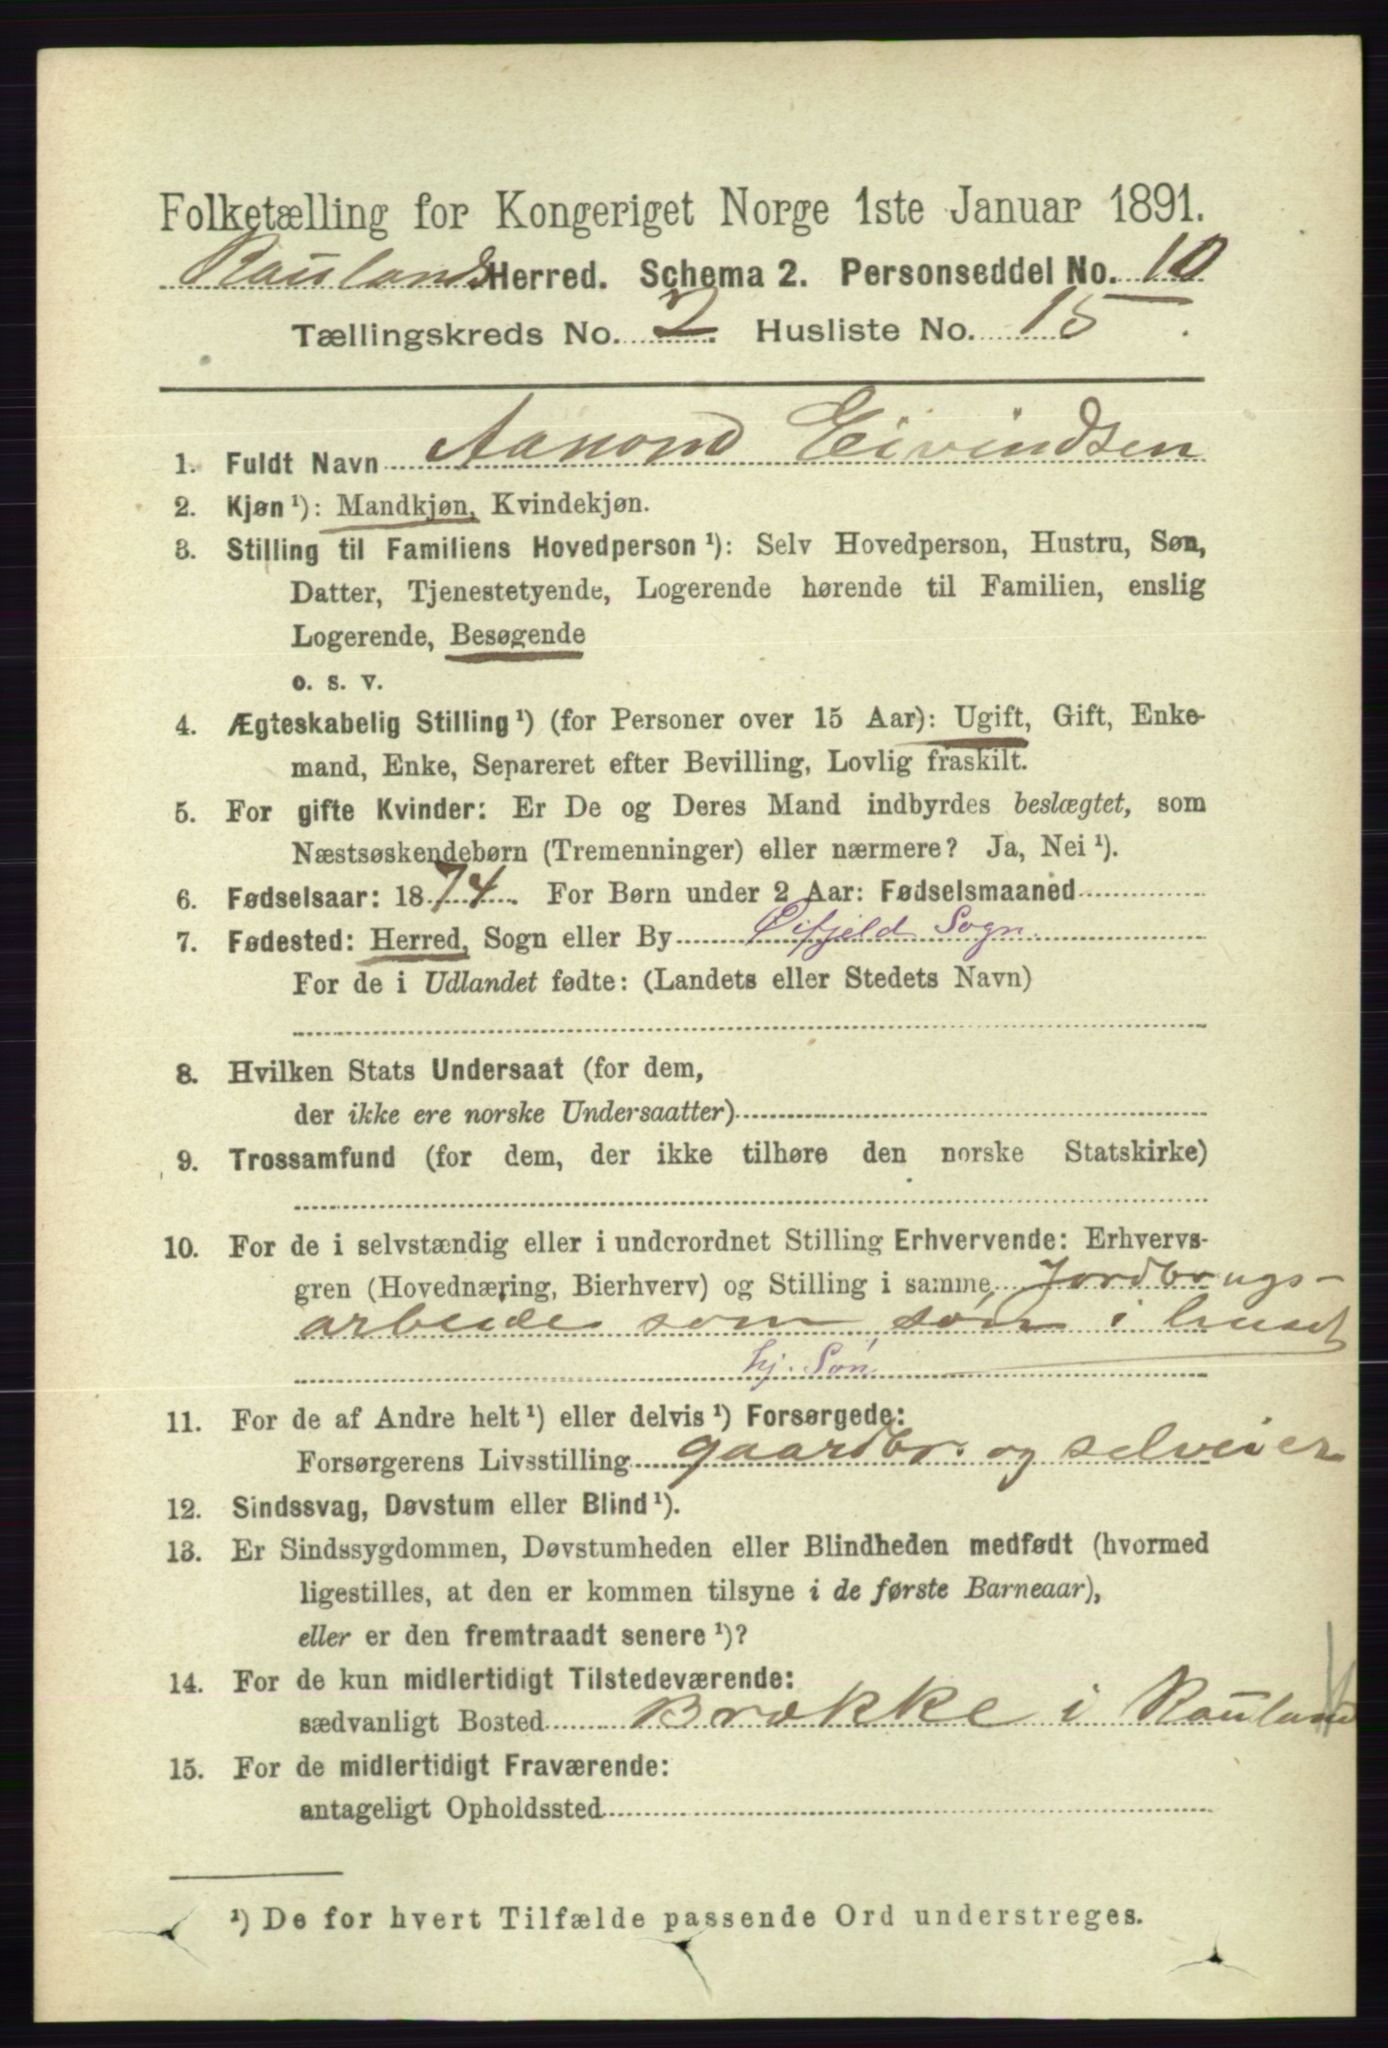 Folketælling for Kongeriget Norge 1ste Januar 1891.
Raulands Herred. Schema 2. Personseddel No. 10
Tællingskreds No. 2. Husliste No. 15.
1. Fuldt Navn Aanond Eivindsen
2. Kjøn ¹): Mandkjøn, Kvindekjøn.
3. Stilling til Familiens Hovedperson ¹): Selv Hovedperson, Hustru, Søn,
Datter, Tjenestetyende, Logerende hørende til Familien, enslig
Logerende, Besøgende
o. s. v.
4. Ægteskabelig Stilling ¹) (for Personer over 15 Aar): Ugift, Gift, Enke-
mand, Enke, Separeret efter Bevilling, Lovlig fraskilt.
5. For gifte Kvinder: Er De og Deres Mand indbyrdes beslægtet, som
Næstsøskendebørn (Tremenninger) eller nærmere? Ja, Nei ¹).
6. Fødselsaar: 1874. For Børn under 2 Aar: Fødselsmaaned
7. Fødested: Herred, Sogn eller By Øifjeld Sogn.
For de i Udlandet fødte: (Landets eller Stedets Navn)
8. Hvilken Stats Undersaat (for dem,
der ikke ere norske Undersaatter)
9. Trossamfund (for dem, der ikke tilhøre den norske Statskirke)
10. For de i selvstændig eller i underordnet Stilling Erhvervende: Erhvervs-
gren (Hovednæring, Bierhverv) og Stilling i samme Jordbrugs-
arbeide som søn i huset
hj. Søn
11. For de af Andre helt ¹) eller delvis ¹) Forsørgede:
Forsørgerens Livsstilling gaardbr. og selveier
12. Sindssvag, Døvstum eller Blind ¹).
13. Er Sindssygdommen, Døvstumheden eller Blindheden medfødt (hvormed
ligestilles, at den er kommen tilsyne i de første Barneaar),
eller er den fremtraadt senere ¹)?
14. For de kun midlertidigt Tilstedeværende:
sædvanligt Bosted Brække i Rauland
15. For de midlertidigt Fraværende:
antageligt Opholdssted
¹) De for hvert Tilfælde passende Ord understreges.